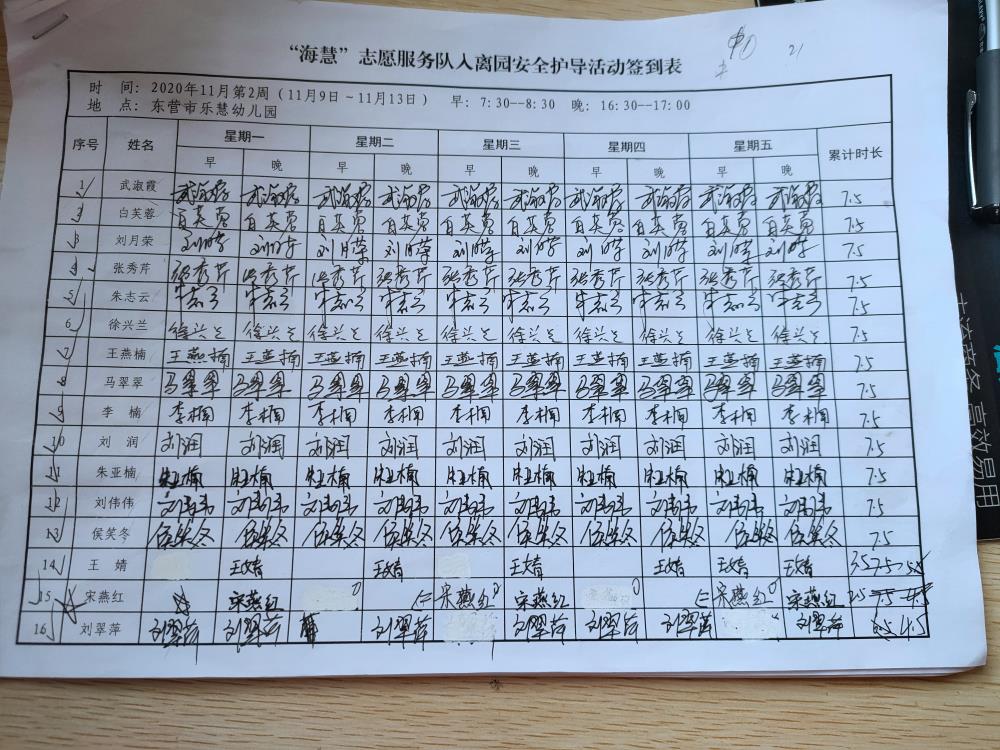 “海慧”志愿服务队入离园安全护导活动签到表
时 间: 2020年11月第2周(11月9日~11月13日) 早: 7:30--8:30 晚: 16:30--17:00
地 点: 东营市乐慧幼儿园
序号 姓名 星期一 星期二 星期三 星期四 星期五 累计时长
早 晚 早 晚 早 晚 早 晚 早 晚
1 武淑霞 武淑霞 武淑霞 武淑霞 武淑霞 武淑霞 武淑霞 武淑霞 武淑霞 武淑霞 武淑霞 7.5
2 白芙蓉 白芙蓉 白芙蓉 白芙蓉 白芙蓉 白芙蓉 白芙蓉 白芙蓉 白芙蓉 白芙蓉 白芙蓉 7.5
3 刘月荣 刘月荣 刘月荣 刘月荣 刘月荣 刘月荣 刘月荣 刘月荣 刘月荣 刘月荣 刘月荣 7.5
4 张秀芹 张秀芹 张秀芹 张秀芹 张秀芹 张秀芹 张秀芹 张秀芹 张秀芹 张秀芹 张秀芹 7.5
5 朱志云 朱志云 朱志云 朱志云 朱志云 朱志云 朱志云 朱志云 朱志云 朱志云 朱志云 7.5
6 徐兴兰 徐兴兰 徐兴兰 徐兴兰 徐兴兰 徐兴兰 徐兴兰 徐兴兰 徐兴兰 徐兴兰 徐兴兰 7.5
7 王燕楠 王燕楠 王燕楠 王燕楠 王燕楠 王燕楠 王燕楠 王燕楠 王燕楠 王燕楠 王燕楠 7.5
8 马翠翠 马翠翠 马翠翠 马翠翠 马翠翠 马翠翠 马翠翠 马翠翠 马翠翠 马翠翠 马翠翠 7.5
9 李 楠 李楠 李楠 李楠 李楠 李楠 李楠 李楠 李楠 李楠 李楠 7.5
10 刘 润 刘润 刘润 刘润 刘润 刘润 刘润 刘润 刘润 刘润 刘润 7.5
11 朱亚楠 朱亚楠 朱亚楠 朱亚楠 朱亚楠 朱亚楠 朱亚楠 朱亚楠 朱亚楠 朱亚楠 朱亚楠 7.5
12 刘伟伟 刘伟伟 刘伟伟 刘伟伟 刘伟伟 刘伟伟 刘伟伟 刘伟伟 刘伟伟 刘伟伟 刘伟伟 7.5
13 侯笑冬 侯笑冬 侯笑冬 侯笑冬 侯笑冬 侯笑冬 侯笑冬 侯笑冬 侯笑冬 侯笑冬 侯笑冬 7.5
14 王 婧 王婧 王婧 王婧 王婧 王婧 王婧 3.5
15 宋燕红 宋燕红 宋燕红 宋燕红 宋燕红 宋燕红
16 刘翠萍 刘翠萍 刘翠萍 刘翠萍 刘翠萍 刘翠萍 刘翠萍 刘翠萍 4.5
高效易用
21